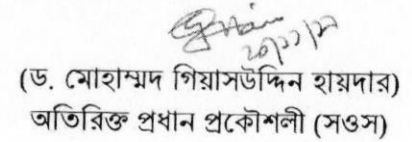 (ড. মোহাম্মদ গিয়াসউদ্দিন হায়দার)
অতিরিক্ত প্রধান প্রকৌশলী (সওস)